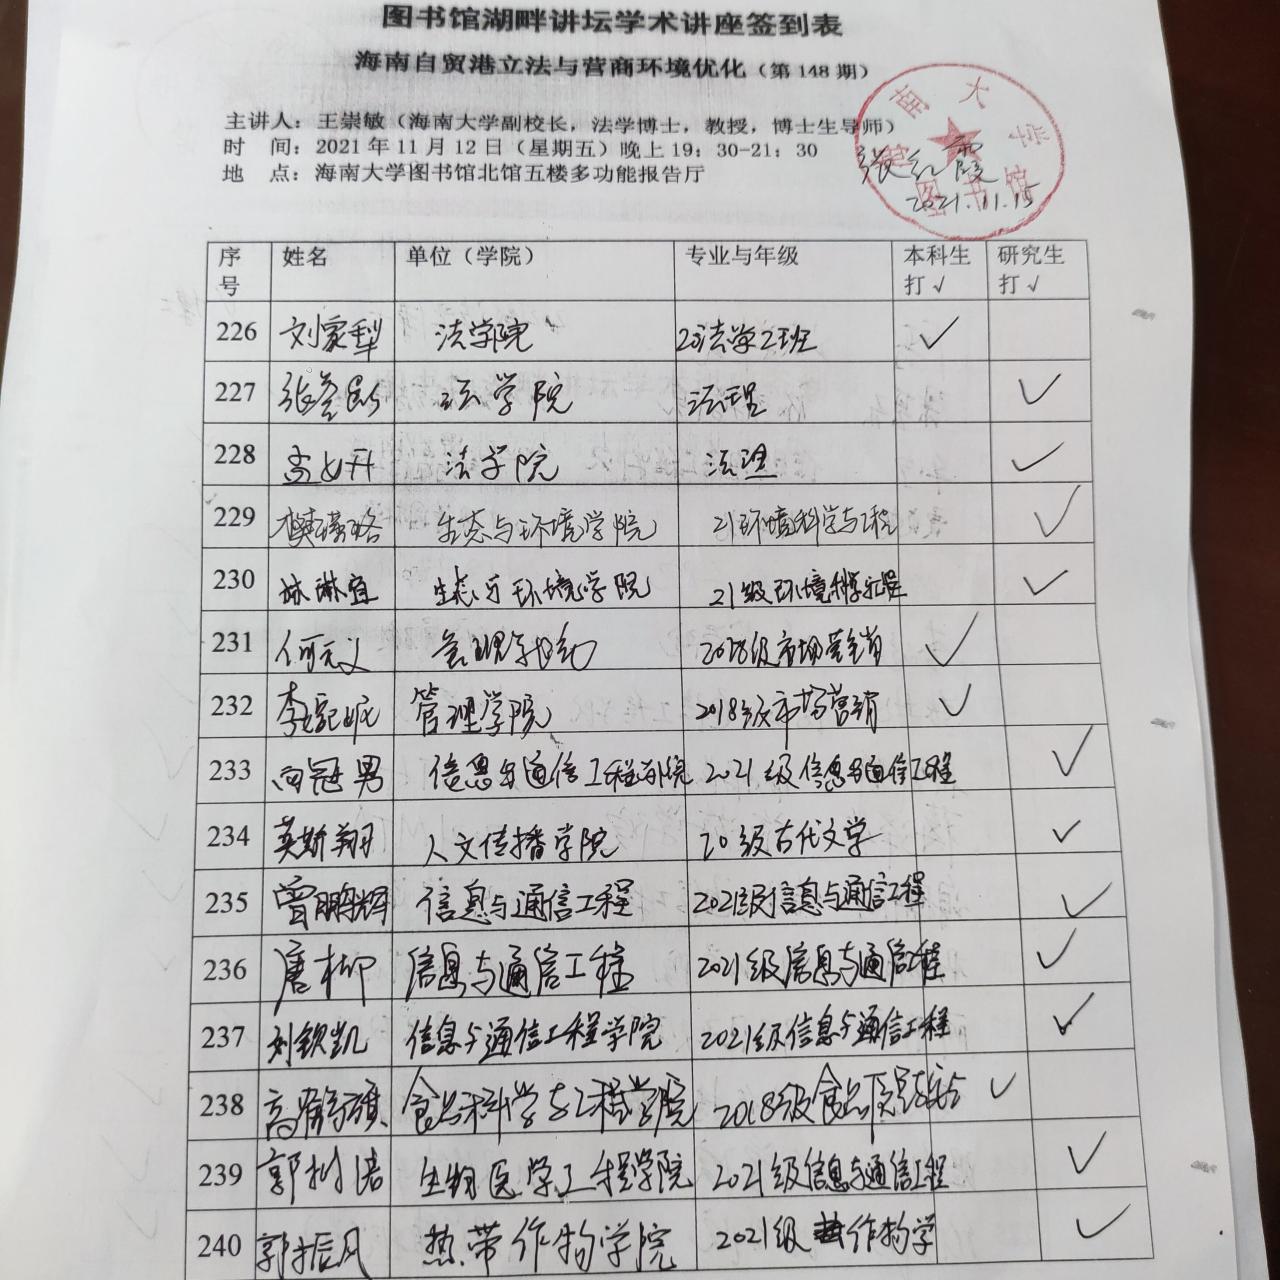 图书馆湖畔讲坛学术讲座签到表
海南自贸港立法与营商环境优化（第 148 期）
主讲人：王崇敏（海南大学副校长，法学博士，教授，博士生导师）
时 间：2021 年 11 月 12 日（星期五）晚上 19：30-21：30
地 点：海南大学图书馆北馆五楼多功能报告厅
南大学
图书馆
张红霞
2021.11.15
序号 姓名 单位（学院） 专业与年级 本科生打√ 研究生打√
226 刘家犁 法学院 20法学2班 √
227 法学院 法理 √
228 法学院 法理 √
229 生态与环境学院 21环境科学与工程 √
230 林琳宜 生态与环境学院 21级环境科学与工程 √
231 何元义 管理学院 2018级市场营销 √
232 李 管理学院 2018级市场营销 √
233 向冠男 信息与通信工程学院 2021级信息与通信工程 √
234 莫斯翔 人文传播学院 20级古代文学 √
235 曾鹏辉 信息与通信工程 2021级信息与通信工程 √
236 唐柳 信息与通信工程 2021级信息与通信工程 √
237 刘钦凯 信息与通信工程学院 2021级信息与通信工程 √
238 高 食品科学与工程学院 2018级食品质量与安全 √
239 郭树浩 生物医学工程学院 2021级信息与通信工程 √
240 郭振月 热带作物学院 2021级 作物学 √